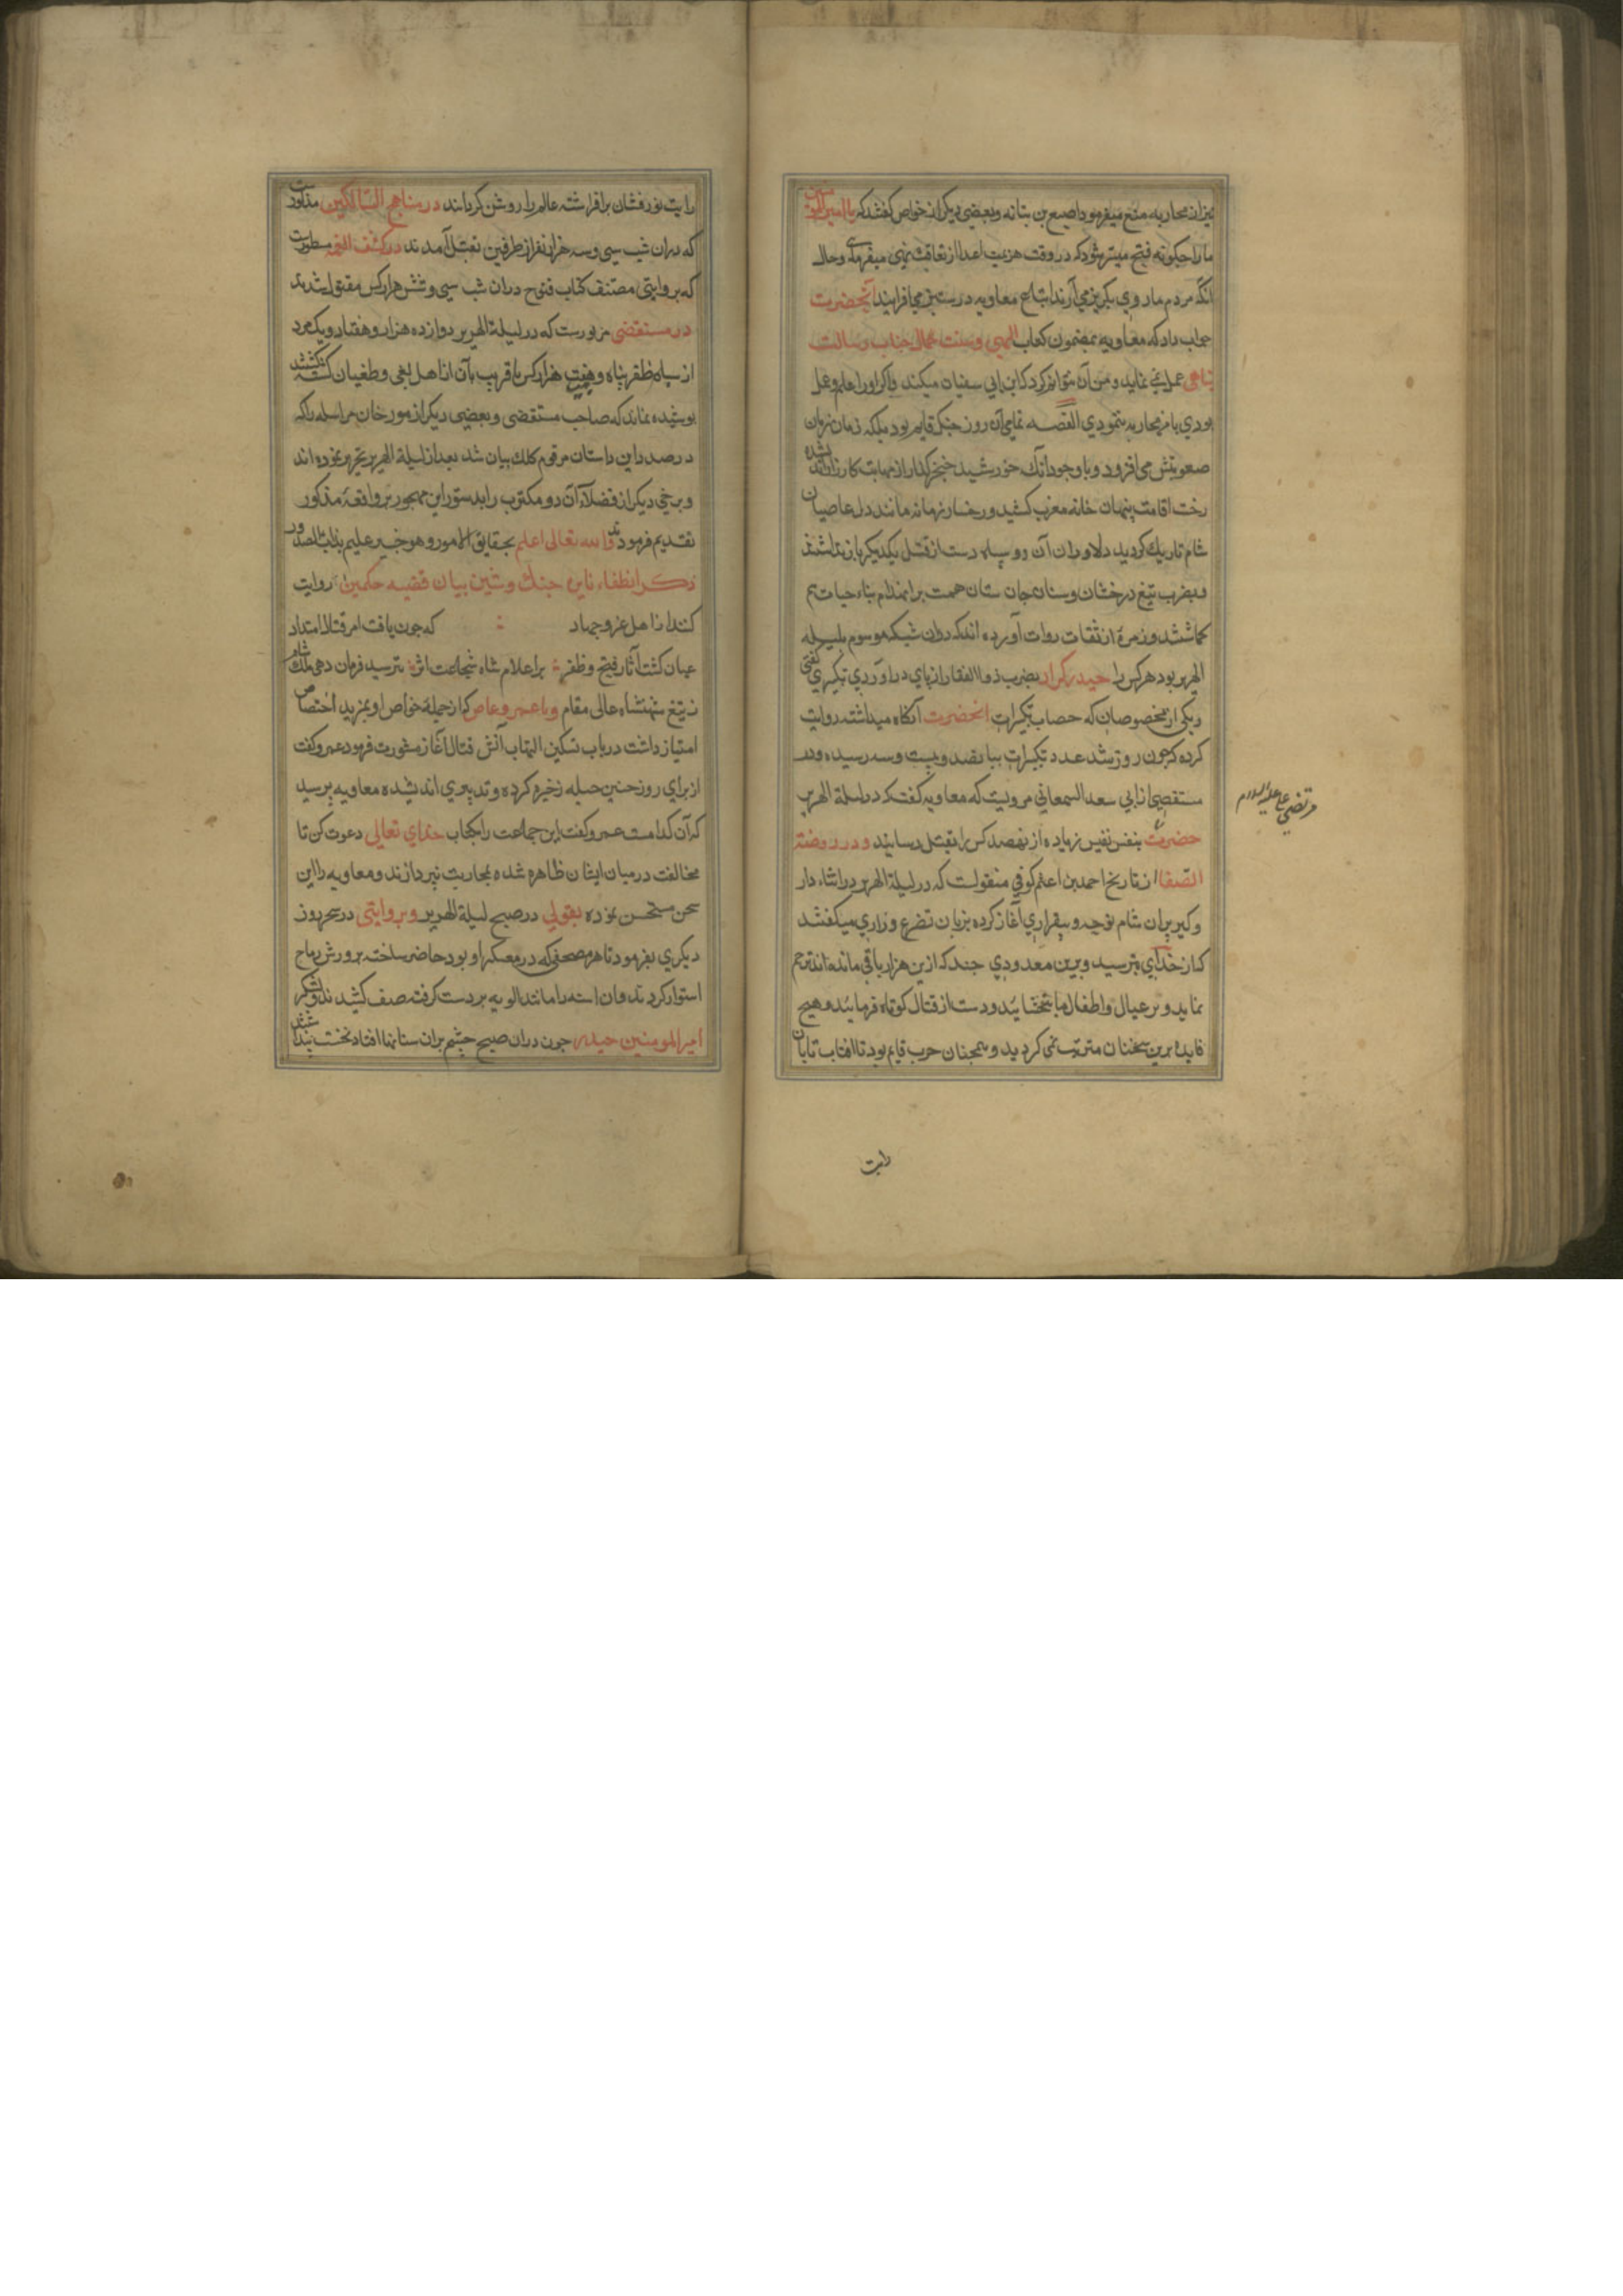 نیزان محاربه منع میفرمود اصبع بن بتانه وبعضی دیکر از خواص کفتند که یا امیرالمومنین
ما را چکونه فتح میسر شود که در وقت هزیمت اعدا از تعاقب نهی میفرمائی وحال
آنکه مردم ما روی بکریز می آرند اتباع معاویه در ستیز می افزایند آنحضرت
جواب داد که معاویه بمضمون کتاب الهی وسنت جناب رسالت
پناهی عمل نمی نماید ومن آن نتوانم کرد که ابن ابی سفیان میکند واکر او را علم وعمل
بودی با من محاربه ننمودی القصه تمامی آن روز جنک قایم بود بلکه زمان زمان
صعوبتش می افزود وبا وجود آنک خورشید خنجرکذار از مهابت کارزار
رخت اقامت بنهان خانه مغرب کشید ورخسار زمانه مانند دل عاصیان
شام تاریک کردید دلاوران آن دو سپاه دست از قتل یکدیکر باز نداشتند
وبضرب تیغ درخشان وسنان جان ستان همت بر انهدام بناء حیات هم
کماشتند وزمرۀ از ثقات روات آورده اند که دران شب که موسوم بلیله
الهریر بود هر کس را حیدر کرار بضرب ذوالفقار از پای در آوردی تکبیری کفتی
ویکی از مخصوصان که حساب تکبیرات آنحضرت نکاه میداشته روایت
کرده که چون روز شد عدد تکبیرات ببانصد وبیست وسه رسیده ودر
مستقصی از ابی سعد السمعانی مرویست که معاویه کفت که در لیلة الهریر
حضرت بنفس نفیس زیاده از نهصد کس را بقتل رسانید ودر روضة
مرتضی علی علیه السلام
الصفا از تاریخ احمد بن اعثم کوفی منقولست که در لیلة الهریر در اثناء دار
وکیر پیران شام نوحه وبیقراری آغاز کرده بزبان تضرع وزاری میکفتند
که از خدای بترسید وبرین معدودی چند که ازین هزار باقی مانده اند ترحم
نمایید وبر عیال واطفال ما ببخشایید ودست از قتال کوتاه فرمایید وهیچ
فایده برین سخنان مترتب نمی کردید وهمچنان حرب قایم بود تا افتاب تابان
رایت
رایت نورفشان برافراشته عالم را روشن کردانید در مناهج السالکین مذکورست
که دران شب سی وسه هزار نفر از طرفین بقتل آمدند در کشف الغمه مسطورست
که بروایتی مصنف کتاب فتوح دران شب سی وشش هزار کس مقتول شدند
در مستقصی مزبورست که در لیلة الهریر دوازده هزار وهفتاد ویک مرد
از سپاه ظفر پناه وهفت هزار کس یا قریب بآن از اهل بغی وطغیان کشته کشتند
پوشیده نماند که صاحب مستقصی وبعضی دیکر از مورخان مراسله را که
در صدر این داستان مرقوم کلک بیان شد بعد از لیلة الهریر تحریر نموده اند
وبرخی دیکر از فضلا آن دو مکتوب را بدستور این مهجور بر واقعۀ مذکور
تقدیم فرمودند والله تعالی اعلم بحقایق الامور وهو خبیر علیم بذات الصدور
ذکر انطفاء نایره جنک وشین بیان قضیه حکمین روایت
کنند از اهل عز وجهاد که چون یافت امر قتال امتداد
عیان کشت آثار فتح وظفر بر اعلام شاه شجاعت اثر بترسید فرمان ده ملک شام
ز تیغ شهنشاه عالی مقام وبا عمرو عاص که از جمله خواص او بمزید اختصاص
امتیاز داشت در باب تسکین التهاب آتش قتال آغاز مشورت فرمود عمرو کفت
از برای روز چنین حیله ذخیره کرده وتدبیری اندیشده معاویه پرسید
که آن کدامست عمرو کفت این جماعت را بکتاب خدای تعالی دعوت کن تا
مخالفت در میان ایشان ظاهر شده بمحاربت نپردازند ومعاویه را این
سخن مستحسن نموده بقولی در صبح لیلة الهریر وبروایتی در سحر روز
دیکری بفرمود تا هر مصحفی که در معسکر او بود حاضر ساخته بر روس رماح
استوار کردند وان اسنه را مانند الویه بر دست کرفته صف کشیدند ولشکر
امیرالمومنین حیدر چون دران صبح چشم بران سنانها افتاد نخست